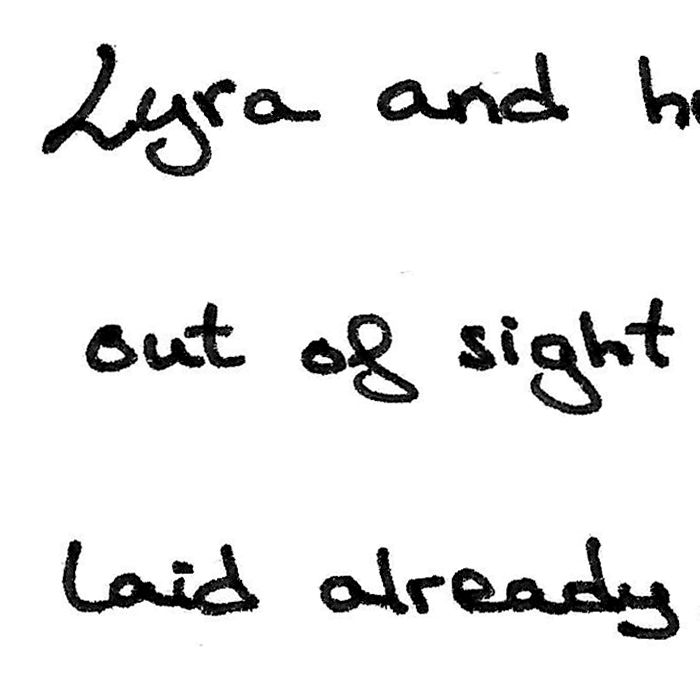 Lyra and
out of sight
laid already